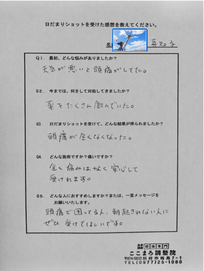 日だまりショットを受けた感想を教えてください。
Q1: 最初、どんな悩みがありましたか?
天気が悪いと頭痛がしてた。
Q2. 今までは、何をして対処してきましたか?
薬をたくさん飲んでいた。
Q3 日だまりショットを受けて、どんな結果が得られましたか?
頭痛が全くなくなった。
Q4. どんな施術ですか?痛いですか?
全く痛みはなく安心して
受けれます。
Q5. どんな人におすすめしますか?または、一言メッセージを
お願いいたします。
頭痛で困ってる人、朝起きれない人に
ぜひ受けてほしいです。
ここまろ調整院
TEL(0977)25-1080